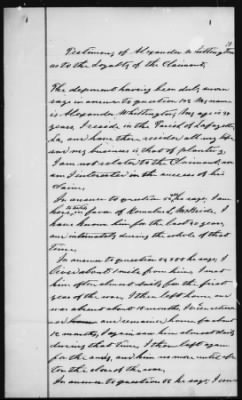 Testimony of Alexander Whittington
as to the Loyalty of the Claimant.
The deponent having been duly sworn
says in answer to question 1st My name
is Alexander Whittington, my age is
years, I reside in the Parish of Lafayette,
La, and have there resided all my life
and my business is that of planting,
I am not related to the Claimant, nor
am I interested in the success of his
claim.
In answer to question 2nd he says, I am
here, to testify in favor of
have known him for the last 20 years,
am intimately during the whole of that
time.
In answer to question he says, I
lived about 1 mile from him, I met
him often almost daily for the first
year of the war. I then left home, and
was absent about 18 months, I then returned
and remained home for about
12 months, I again saw him almost daily
during that time, I then left again
for the army, and him no more until after
the close of the war.
In answer to question he says, I